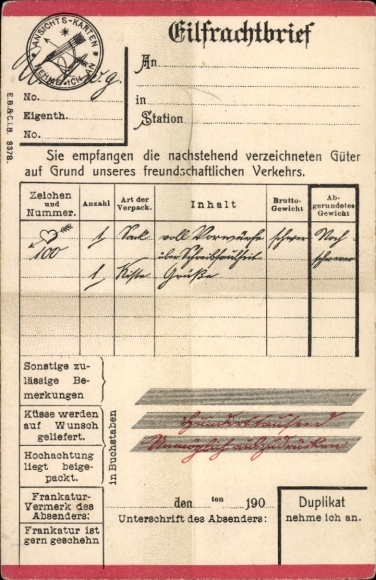 Eilfrachtbrief
ANSICHTS-KARTEN
NEHME ICH AN
An
No.
Eigenth.
No.
in
Station
E.B.&C.i.B. 9378.
Sie empfangen die nachstehend verzeichneten Güter
auf Grund unseres freundschaftlichen Verkehrs.
Zeichen und Nummer.
Anzahl
Art der Verpack.
Inhalt
Brutto-Gewicht
Abgerundetes Gewicht
100 1 Sack voll Vorwürfe schwer Noch
über Schreibfaulheit schwerer
1 Kiste Grüße
Sonstige zu-
lässige Be-
merkungen
Küsse werden
auf Wunsch
geliefert.
Hochachtung
liegt beige-
packt.
in Buchstaben
Hunderttausend
Unmöglich auszudrücken
Frankatur-
Vermerk des
Absenders:
Frankatur ist
gern geschehn
den ten 190
Unterschrift des Absenders:
Duplikat
nehme ich an.